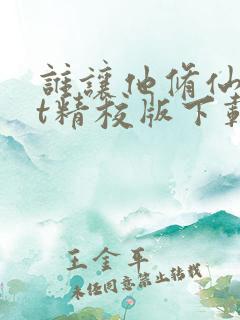 誰讓他修仙
t精校版下載
王金平
未经同意禁止转载